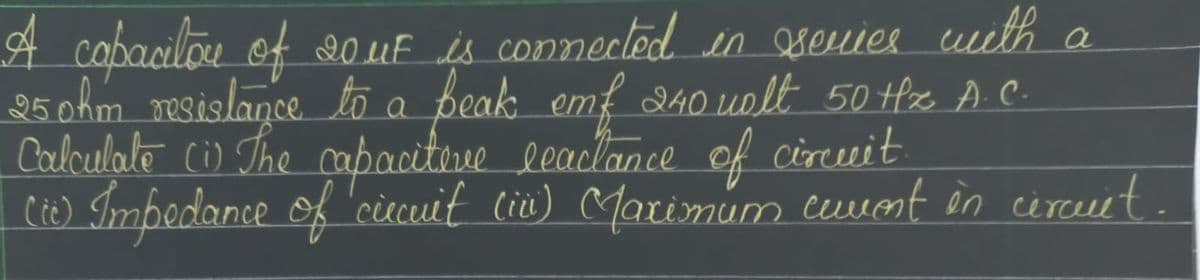 A capacitor of 20 uF is connected in series with a
25 ohm resistance to a peak emf 240 volt 50 Hz A.C.
Calculate (i) The capacitive reactance of circuit.
(ii) Impedance of circuit (iii) Maximum current in circuit.